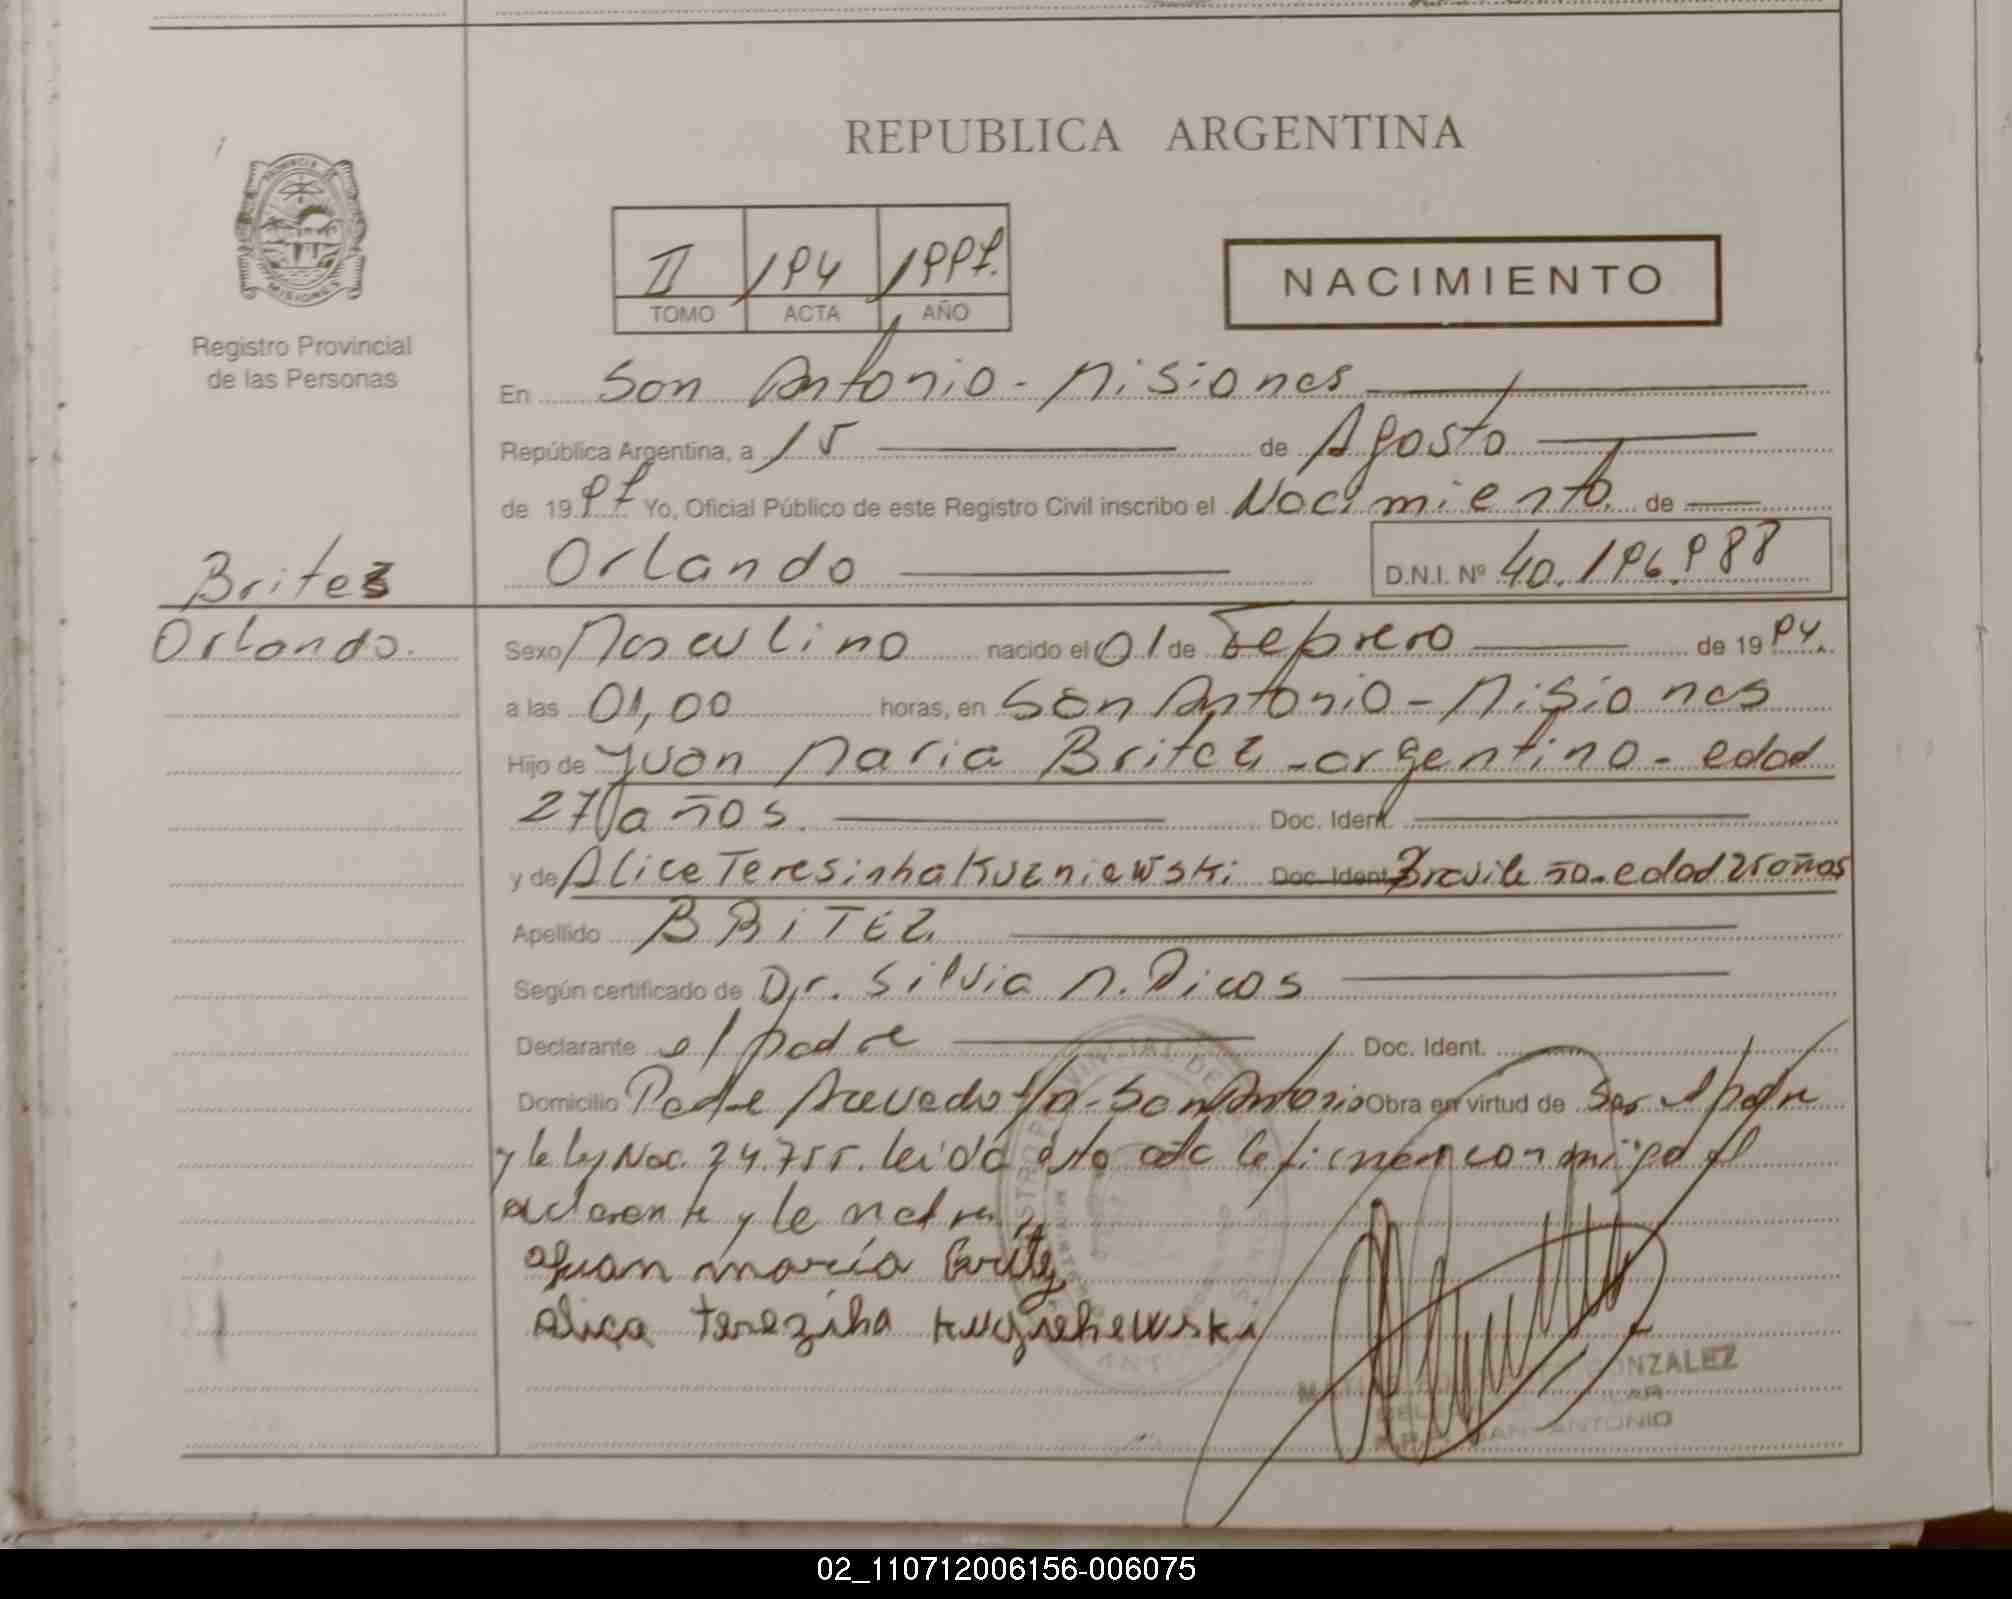 REPUBLICA ARGENTINA
PROVINCIA DE
MISIONES
Registro Provincial
de las Personas
II 194 1997.
TOMO ACTA AÑO
NACIMIENTO
En San Antonio - Misiones
República Argentina, a 15 de Agosto
de 1997 Yo, Oficial Público de este Registro Civil inscribo el Nacimiento. de
Britez
Orlando D.N.I. Nº 40.196.988
Orlando.
Sexo Masculino nacido el 01 de Febrero de 1994.
a las 01,00 horas, en San Antonio - Misiones
Hijo de Juan Maria Britez - argentino - edad
27 años. Doc. Ident.
y de Alice Teresinha Kuzniewski Doc. Ident. Brasileña - edad 25 años
Apellido BRITEZ
Según certificado de Dr. Silvia M. Picos
Declarante el padre Doc. Ident.
Domicilio Padre Acevedo s/n - San Antonio Obra en virtud de Ser el padre
y la ley Nac. 24.755. leida esta acta la firman conmigo el
declarante y la madre
Juan maría Britez
Alica Tereziha
GONZALEZ
SAN ANTONIO
02_110712006156-006075